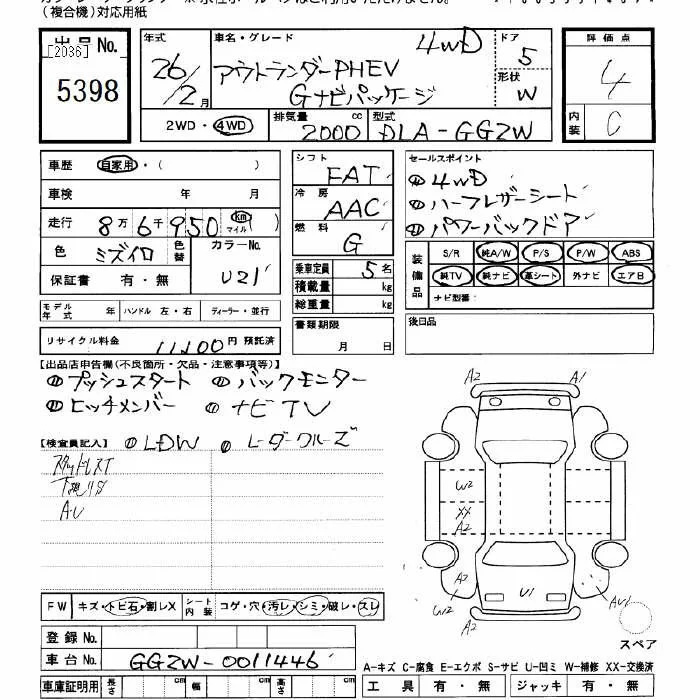 (複合機)対応用紙
出品No.
[2036]
5398
年式
26/2月
車名・グレード
アウトランダーPHEV 4WD
Gナビパッケージ
ドア
5
形状
W
2WD・4WD
排気量
2000 cc
型式
DLA-GG2W
評価点
4
内装
C
車歴 自家用・( )
車検 年 月
走行 8万6千950 km マイル ( )
色 ミズイロ 色替 カラーNo. U21
保証書 有・無
モデル年式 ハンドル 左・右 ディーラー・並行
リサイクル料金 11,100円 預託済
シフト FAT
冷房 AAC
燃料 G
乗車定員 5名
積載量 kg
総重量 kg
書類期限 月 日
セールスポイント
① 4WD
① ハーフレザーシート
① パワーバックドア
装備品
S/R 純A/W P/S P/W ABS
純TV 純ナビ 革シート 外ナビ エアB
ナビ型番:
後日品
[出品店申告欄(不良箇所・欠品・注意事項等)]
① プッシュスタート ① バックモニター
① ヒッチメンバー ① ナビTV
① LDW ① レーダークルーズ
[検査員記入]
下廻りS
A・U
FW キズ・トビ石・割レX シート内装 コゲ・穴・汚レ・シミ・破レ・スレ
登録No.
車台No. GG2W-0011446
車庫証明用 長さ cm 幅 cm 高さ cm
A2 A1
W2
XX
A2
A2
W2
U1
AU1
A2
スペア
A-キズ C-腐食 E-エクボ S-サビ U-凹ミ W-補修 XX-交換済
工具 有・無 ジャッキ 有・無